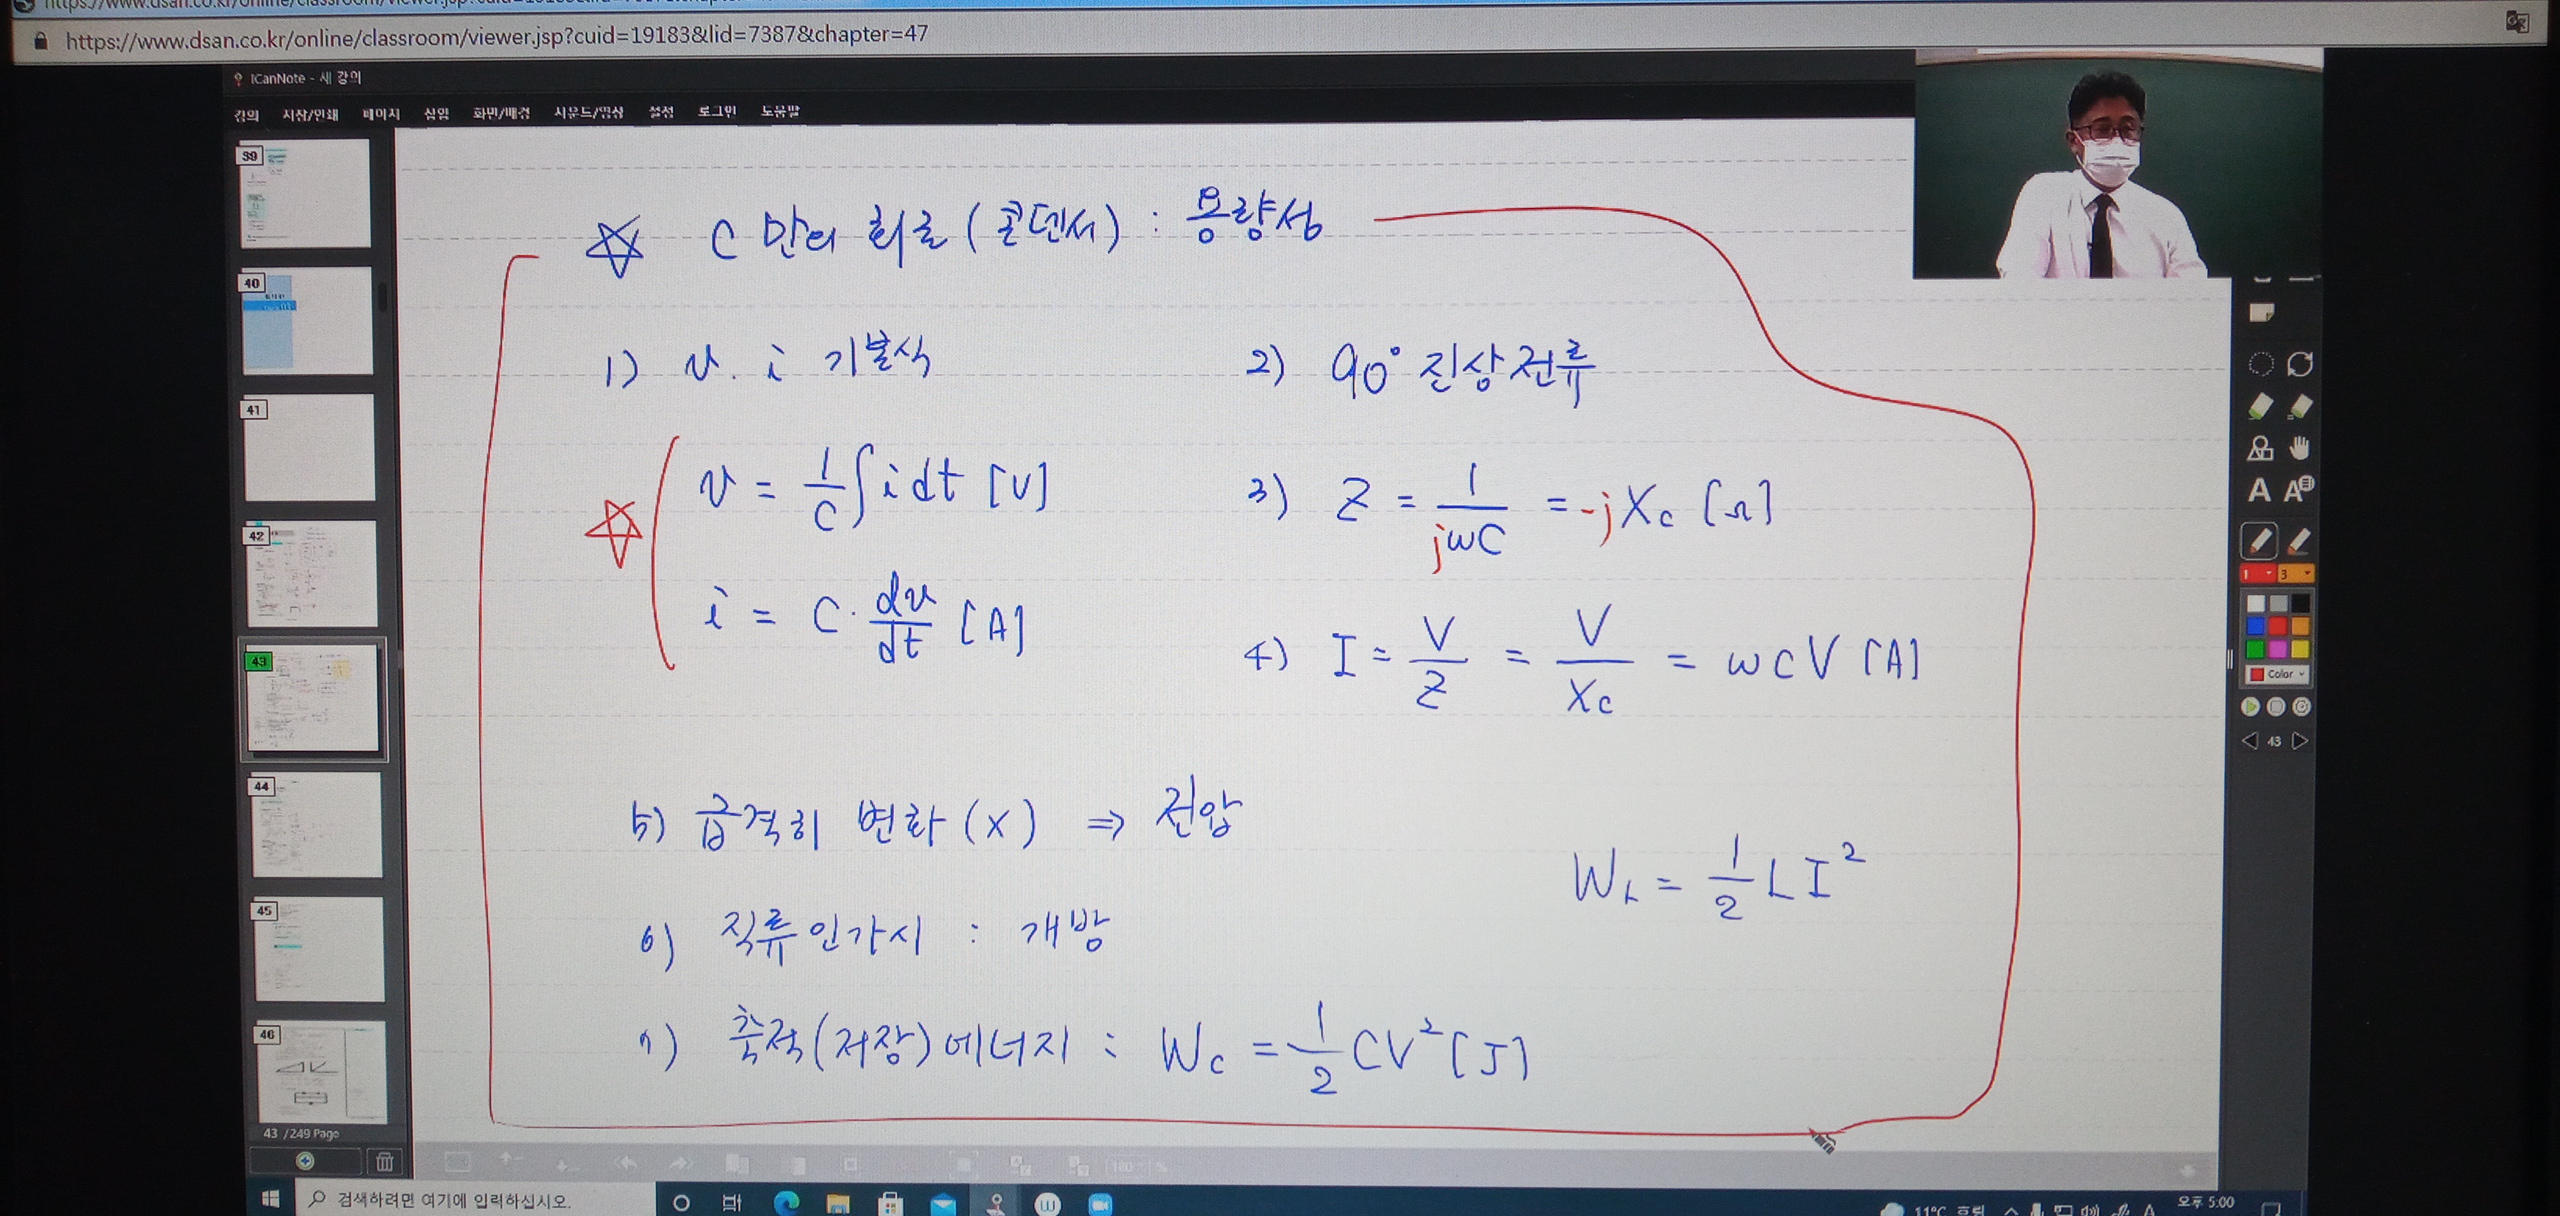 https://www.dsan.co.kr/online/classroom/viewer.jsp?cuid=19183&lid=7387&chapter=47
ICanNote - 새 강의
강의 저장/인쇄 페이지 삽입 화면/배경 사운드/영상 설정 로그인 도움말
39
40
41
42
43
44
45
46
43 /249 Page
☆ C 만의 회로 (콘덴서) : 용량성
1) v. i 기본식
2) 90° 진상전류
☆ v = 1/C ∫ i dt [V]
3) Z = 1/jωC = -jXc [Ω]
i = C · dv/dt [A]
4) I = V/Z = V/Xc = ωCV [A]
5) 급격히 변화 (X) ⇒ 전압
W_L = 1/2 LI²
6) 직류인가시 : 개방
7) 축적(저장)에너지 : Wc = 1/2 CV² [J]
A A
1 3
Color
43
180 %
검색하려면 여기에 입력하십시오.
11°C 흐림 A 오후 5:00